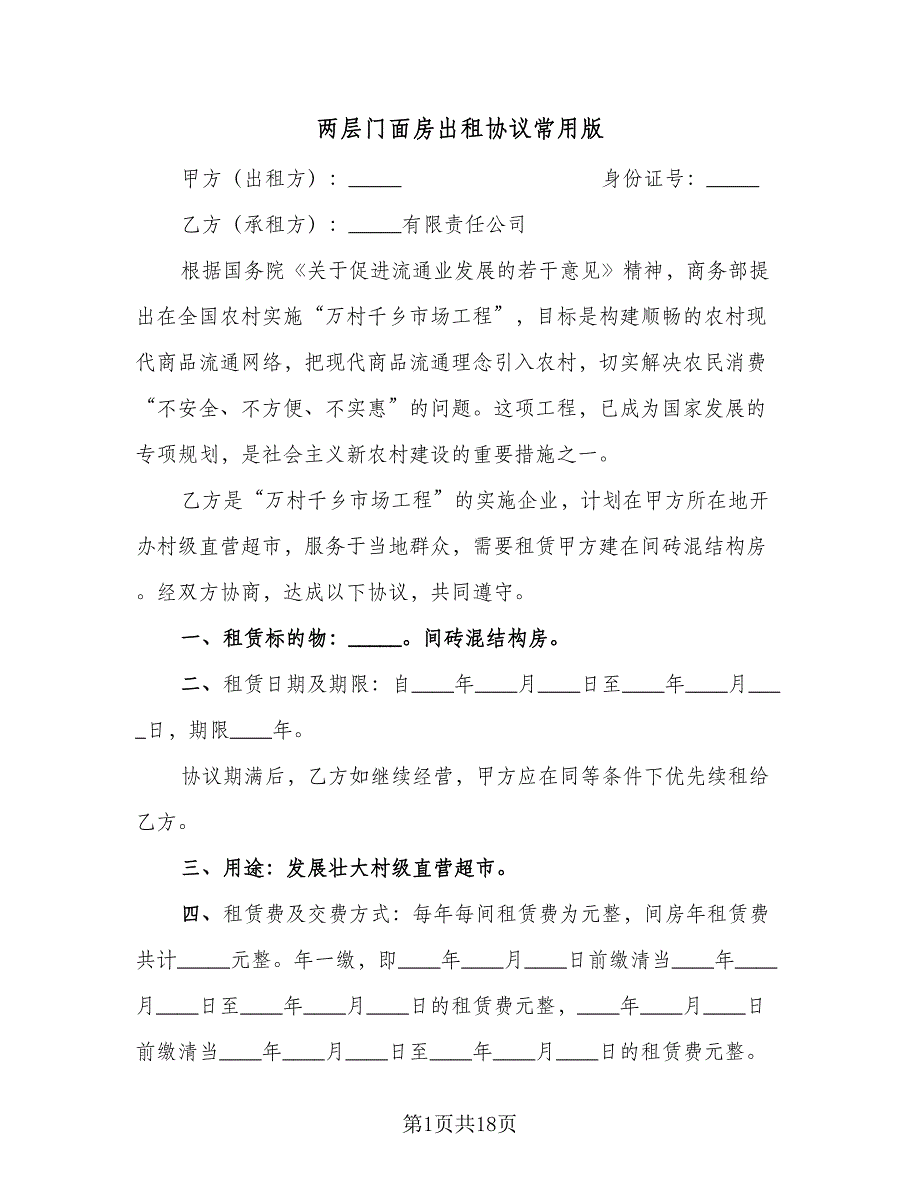 两层门面房出租协议常用版
甲方（出租方）：_____ 身份证号：_____
乙方（承租方）：_____有限责任公司
根据国务院《关于促进流通业发展的若干意见》精神，商务部提
出在全国农村实施“万村千乡市场工程”，目标是构建顺畅的农村现
代商品流通网络，把现代商品流通理念引入农村，切实解决农民消费
“不安全、不方便、不实惠”的问题。这项工程，已成为国家发展的
专项规划，是社会主义新农村建设的重要措施之一。
乙方是“万村千乡市场工程”的实施企业，计划在甲方所在地开
办村级直营超市，服务于当地群众，需要租赁甲方建在间砖混结构房
。经双方协商，达成以下协议，共同遵守。
一、租赁标的物：_____。间砖混结构房。
二、租赁日期及期限：自____年____月____日至____年____月___
_日，期限____年。
协议期满后，乙方如继续经营，甲方应在同等条件下优先续租给
乙方。
三、用途：发展壮大村级直营超市。
四、租赁费及交费方式：每年每间租赁费为元整，间房年租赁费
共计_____元整。年一缴，即____年____月____日前缴清当____年____
月____日至____年____月____日的租赁费元整，____年____月____日
前缴清当____年____月____日至____年____月____日的租赁费元整。
第1页共18页